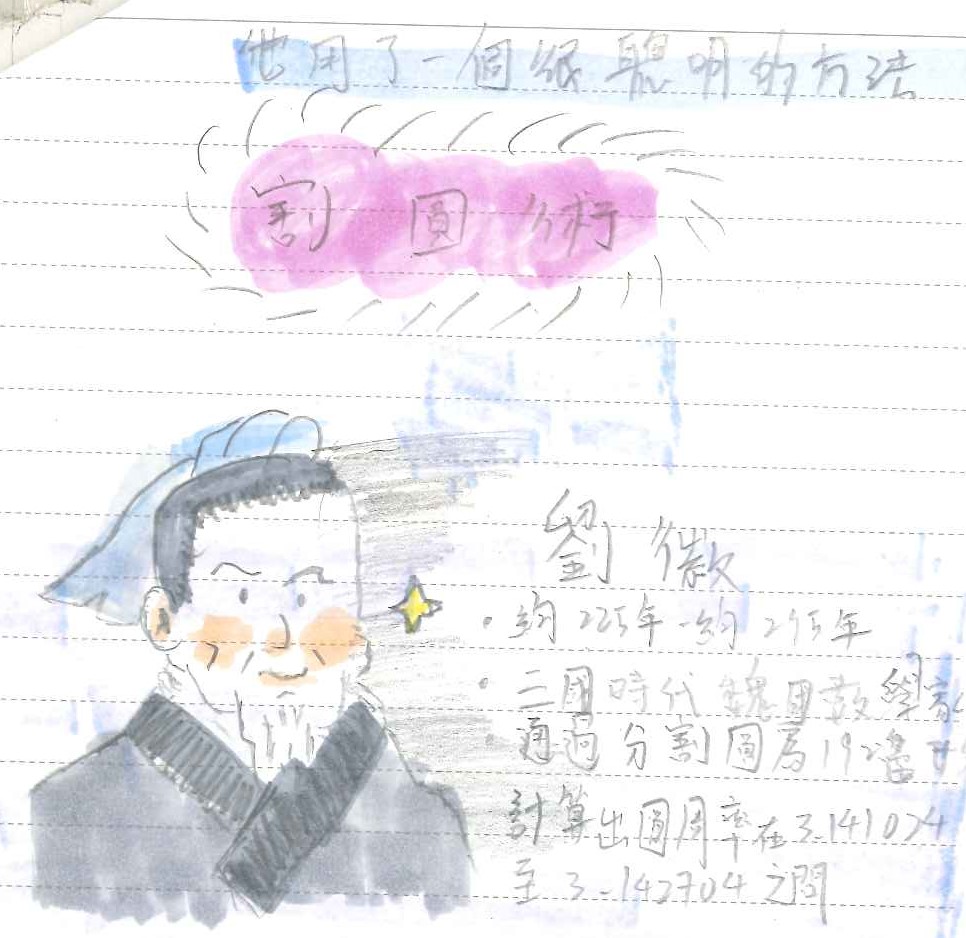 他用了一個很聰明的方法
割圓術
劉徽
·約225年-約295年
·三國時代魏國數學家
·通過分割圓為192邊
計算出圓周率在3.141024
至3.142704之間